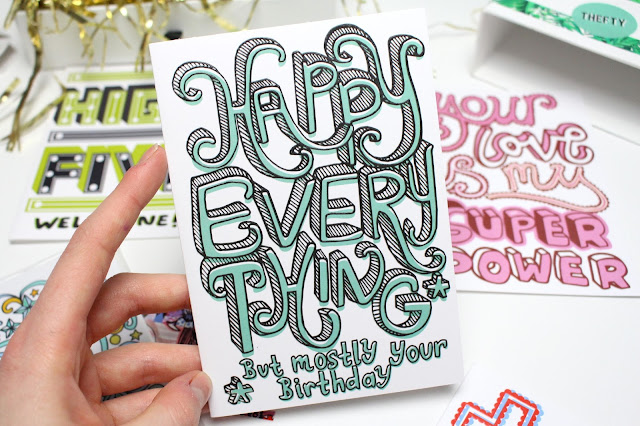 HAPPY
EVERY
THING*
*But mostly your
Birthday
HIGH
FIVE
WELL DONE!
your
love
is my
SUPER
POWER
THEFTY